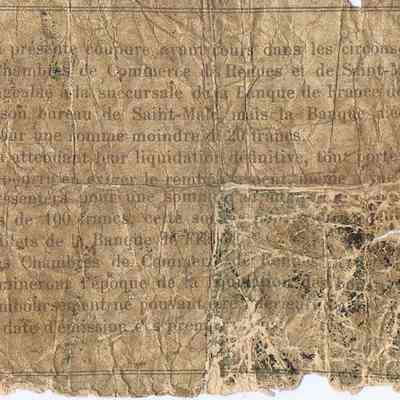 présente coupure ayant cours dans les circons
Chambres de Commerce de Rennes et de Saint-M
ngeable à la succursale de la Banque de France de
son bureau de Saint-Malo, mais la Banque
pour une somme moindre de 20 francs.
attendant leur liquidation définitive, tout porte
pourra en exiger le remboursement même
ésentera pour une somme
de 100 francs, cette so
billets de la Banque de
es Chambres de Commerce de Rennes
mineront l'époque de la liquidation des
mboursement ne pouvant
date d'émission